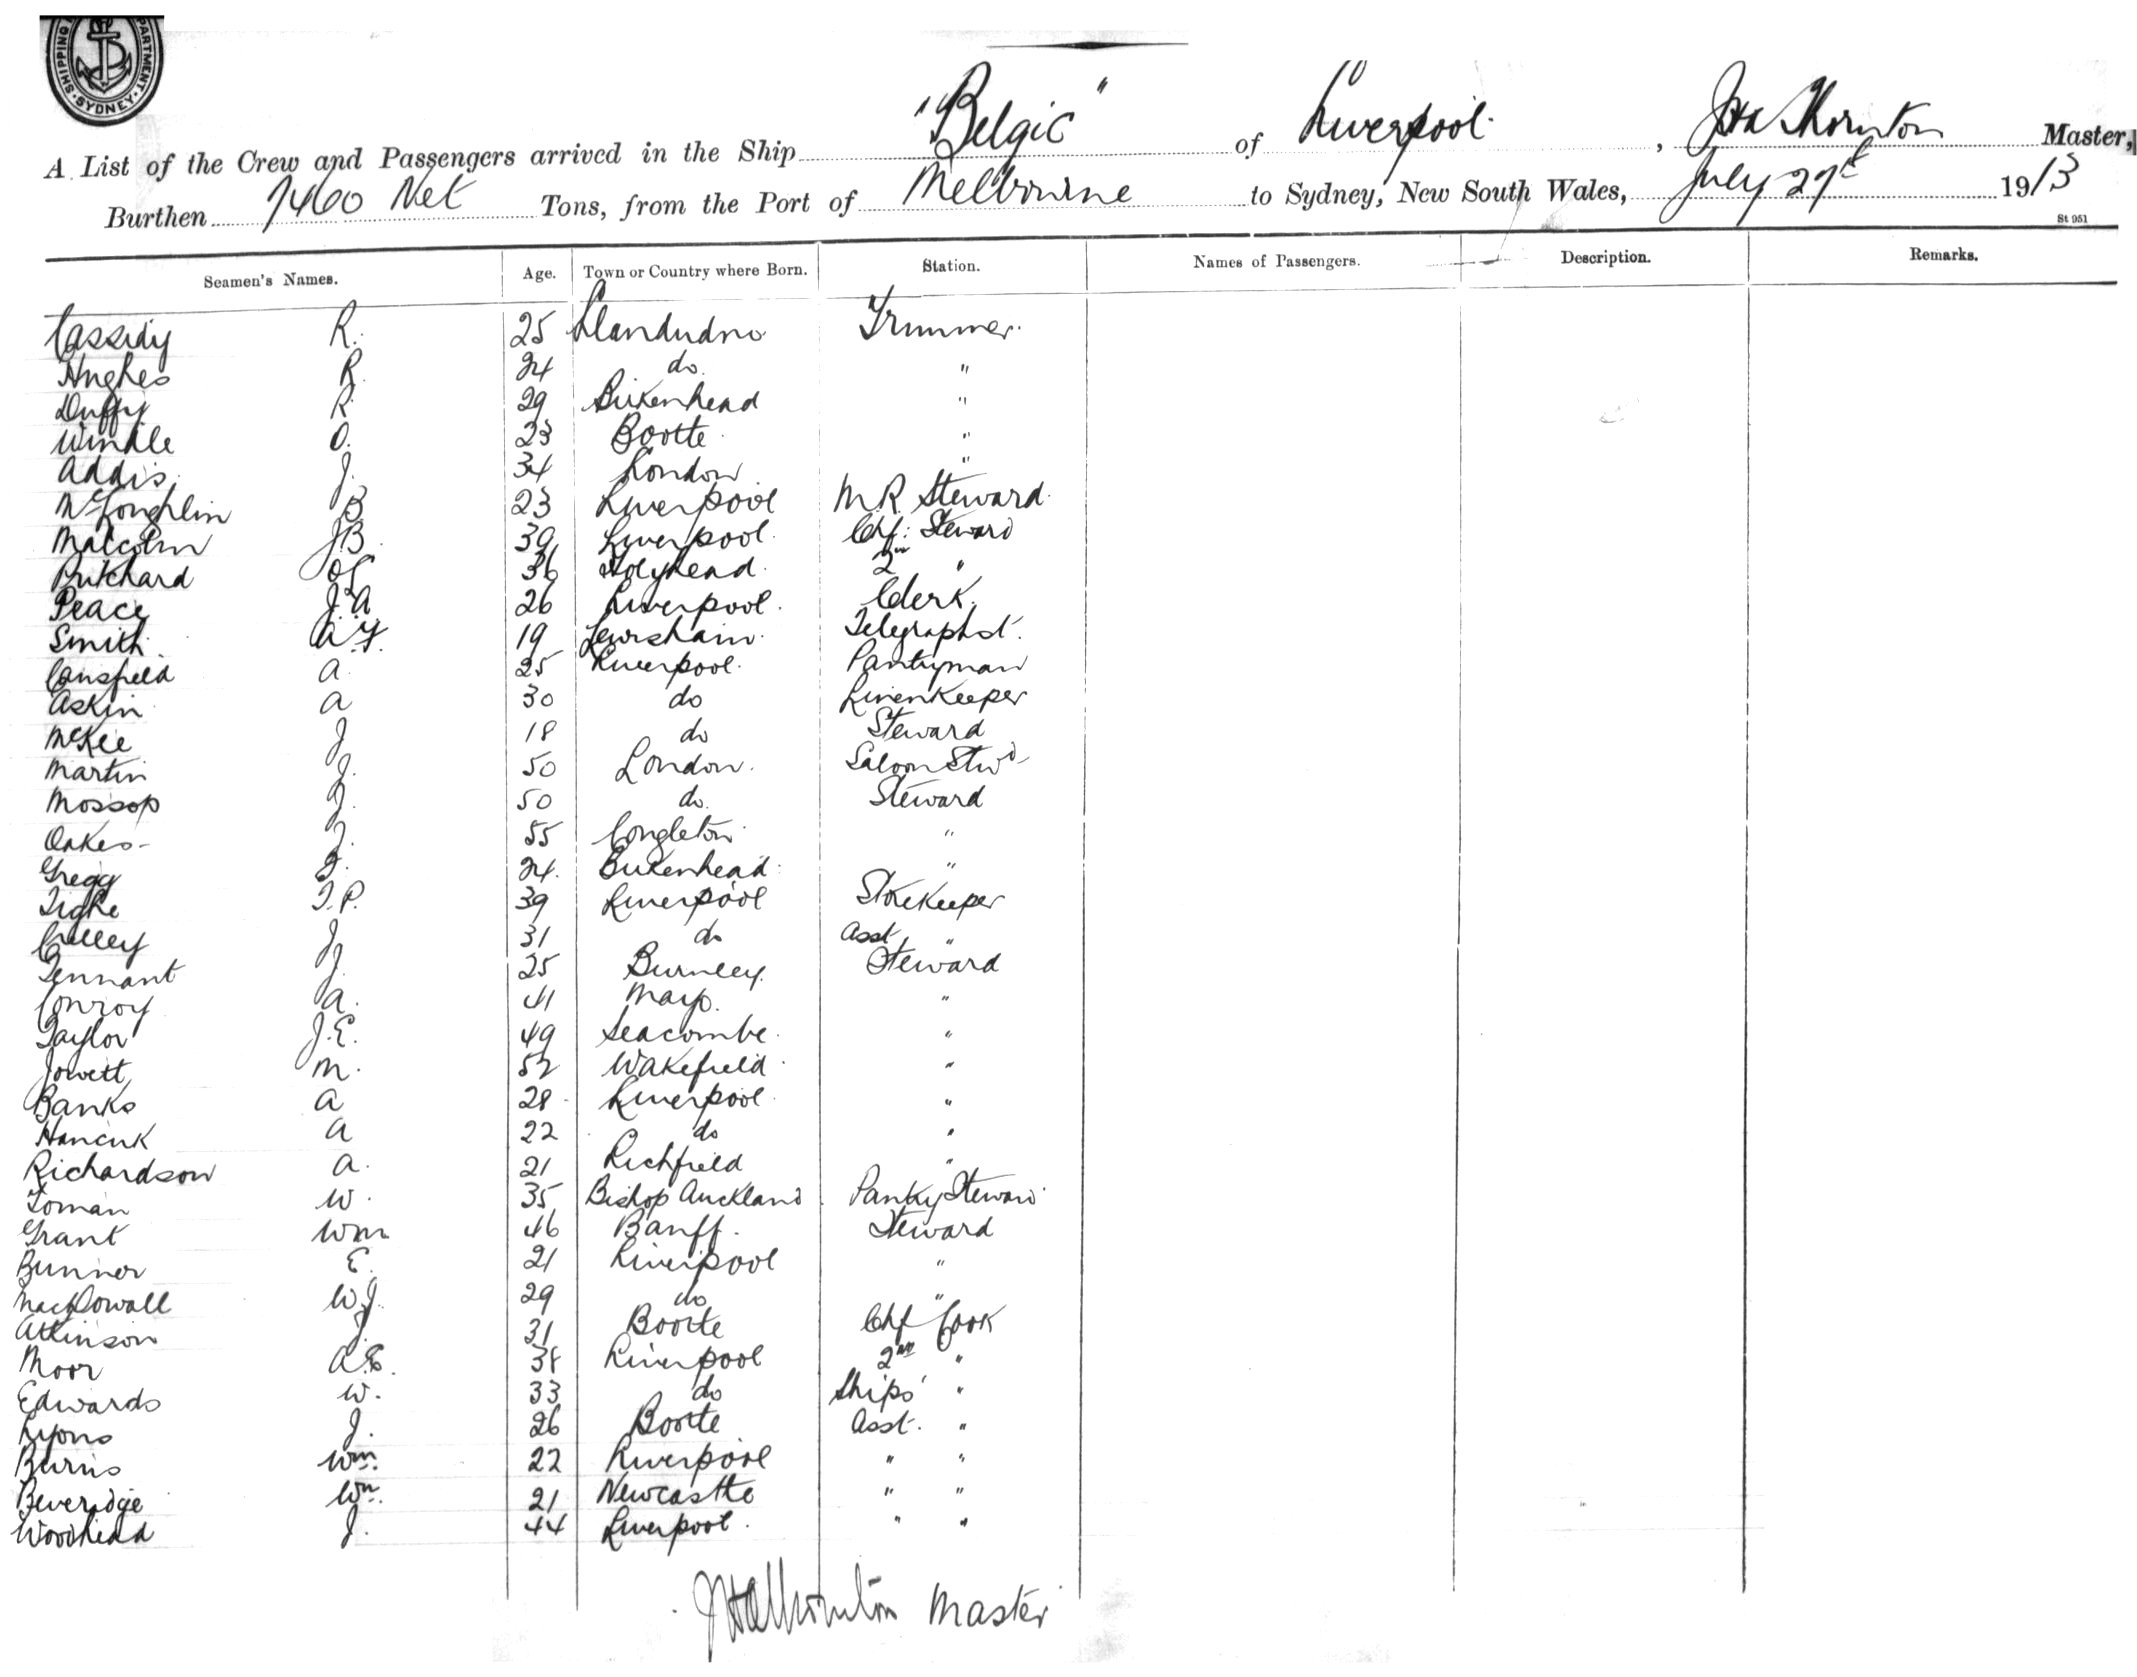 SHIPPING DEPARTMENT SYDNEY
A List of the Crew and Passengers arrived in the Ship "Belgic" of Liverpool, JHA Thornton Master,
Burthen 7460 Net Tons, from the Port of Melbourne to Sydney, New South Wales, July 27t 1913
St 951
Seamen's Names. Age. Town or Country where Born. Station. Names of Passengers. Description. Remarks.
Cassidy R. 25 Llandudno Trimmer.
Hughes R. 24 do. "
Duffy R. 29 Birkenhead "
Windle O. 23 Bootle "
Addis J. 34 London "
McLoughlin B 23 Liverpool M.R. Steward.
Malcolm J.B. 39 Liverpool. Chf: Steward
Pritchard 36 Holyhead. 2nd "
Peace J.A 26 Liverpool. Clerk.
Smith. A.Y. 19 Lewisham. Telegraphst.
Cansfield A. 25 Liverpool. Pantryman
Askin A 30 do Linenkeeper
McKee J 18 do Steward
Martin J. 50 London. Saloon Stwd
Mossop J. 50 do. Steward
Oakes - J. 55 Congleton. "
Gregg J. 24. Birkenhead. "
Tighe T.P. 39 Liverpool Storekeeper
Culley J. 31 do Asst. "
Tennant J. 25 Burnley. Steward
Conroy A. 41 Mayo. "
Taylor J.E. 49 Seacombe. "
Jowett M. 52 Wakefield. "
Banks A 28 Liverpool. "
Hancuk A 22 do "
Richardson A. 21 Lichfield "
Toman W. 35 Bishop Auckland Pantry Steward
Grant Wm 46 Banff. Steward
Bunner E. 21 Liverpool "
MacDowall W.J. 29 do "
Atkinson J. 31 Bootle Chf Cook
Moor A.E. 38 Liverpool 2nd "
Edwards W. 33 do Ships' "
Lyons J. 26 Bootle Asst. "
Burns Wm. 22 Liverpool " "
Beveridge Wm. 21 Newcastle " "
Woodhead J. 44 Liverpool. " "
JHA Thornton Master